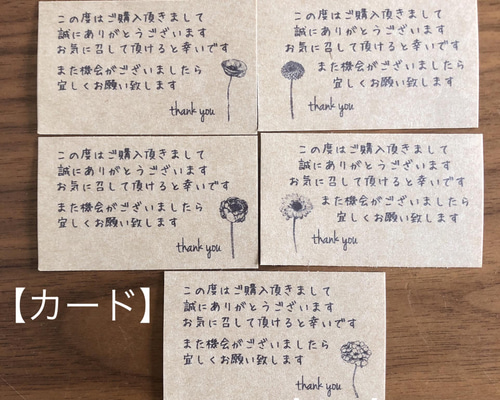 この度はご購入頂きまして
誠にありがとうございます
お気に召して頂けると幸いです
また機会がございましたら
宜しくお願い致します
thank you
この度はご購入頂きまして
誠にありがとうございます
お気に召して頂けると幸いです
また機会がございましたら
宜しくお願い致します
thank you
この度はご購入頂きまして
誠にありがとうございます
お気に召して頂けると幸いです
また機会がございましたら
宜しくお願い致します
thank you
この度はご購入頂きまして
誠にありがとうございます
お気に召して頂けると幸いです
また機会がございましたら
宜しくお願い致します
thank you
【カード】
この度はご購入頂きまして
誠にありがとうございます
お気に召して頂けると幸いです
また機会がございましたら
宜しくお願い致します
thank you